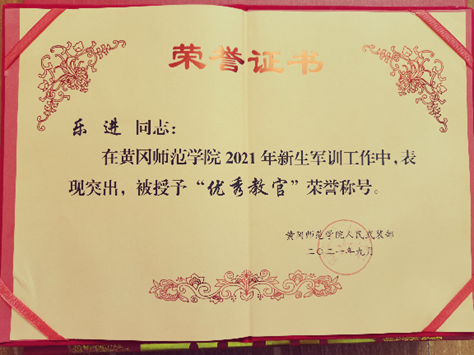 荣誉证书
乐进 同志：
在黄冈师范学院2021年新生军训工作中，表
现突出，被授予“优秀教官”荣誉称号。
黄冈师范学院人民武装部
二〇二一年九月